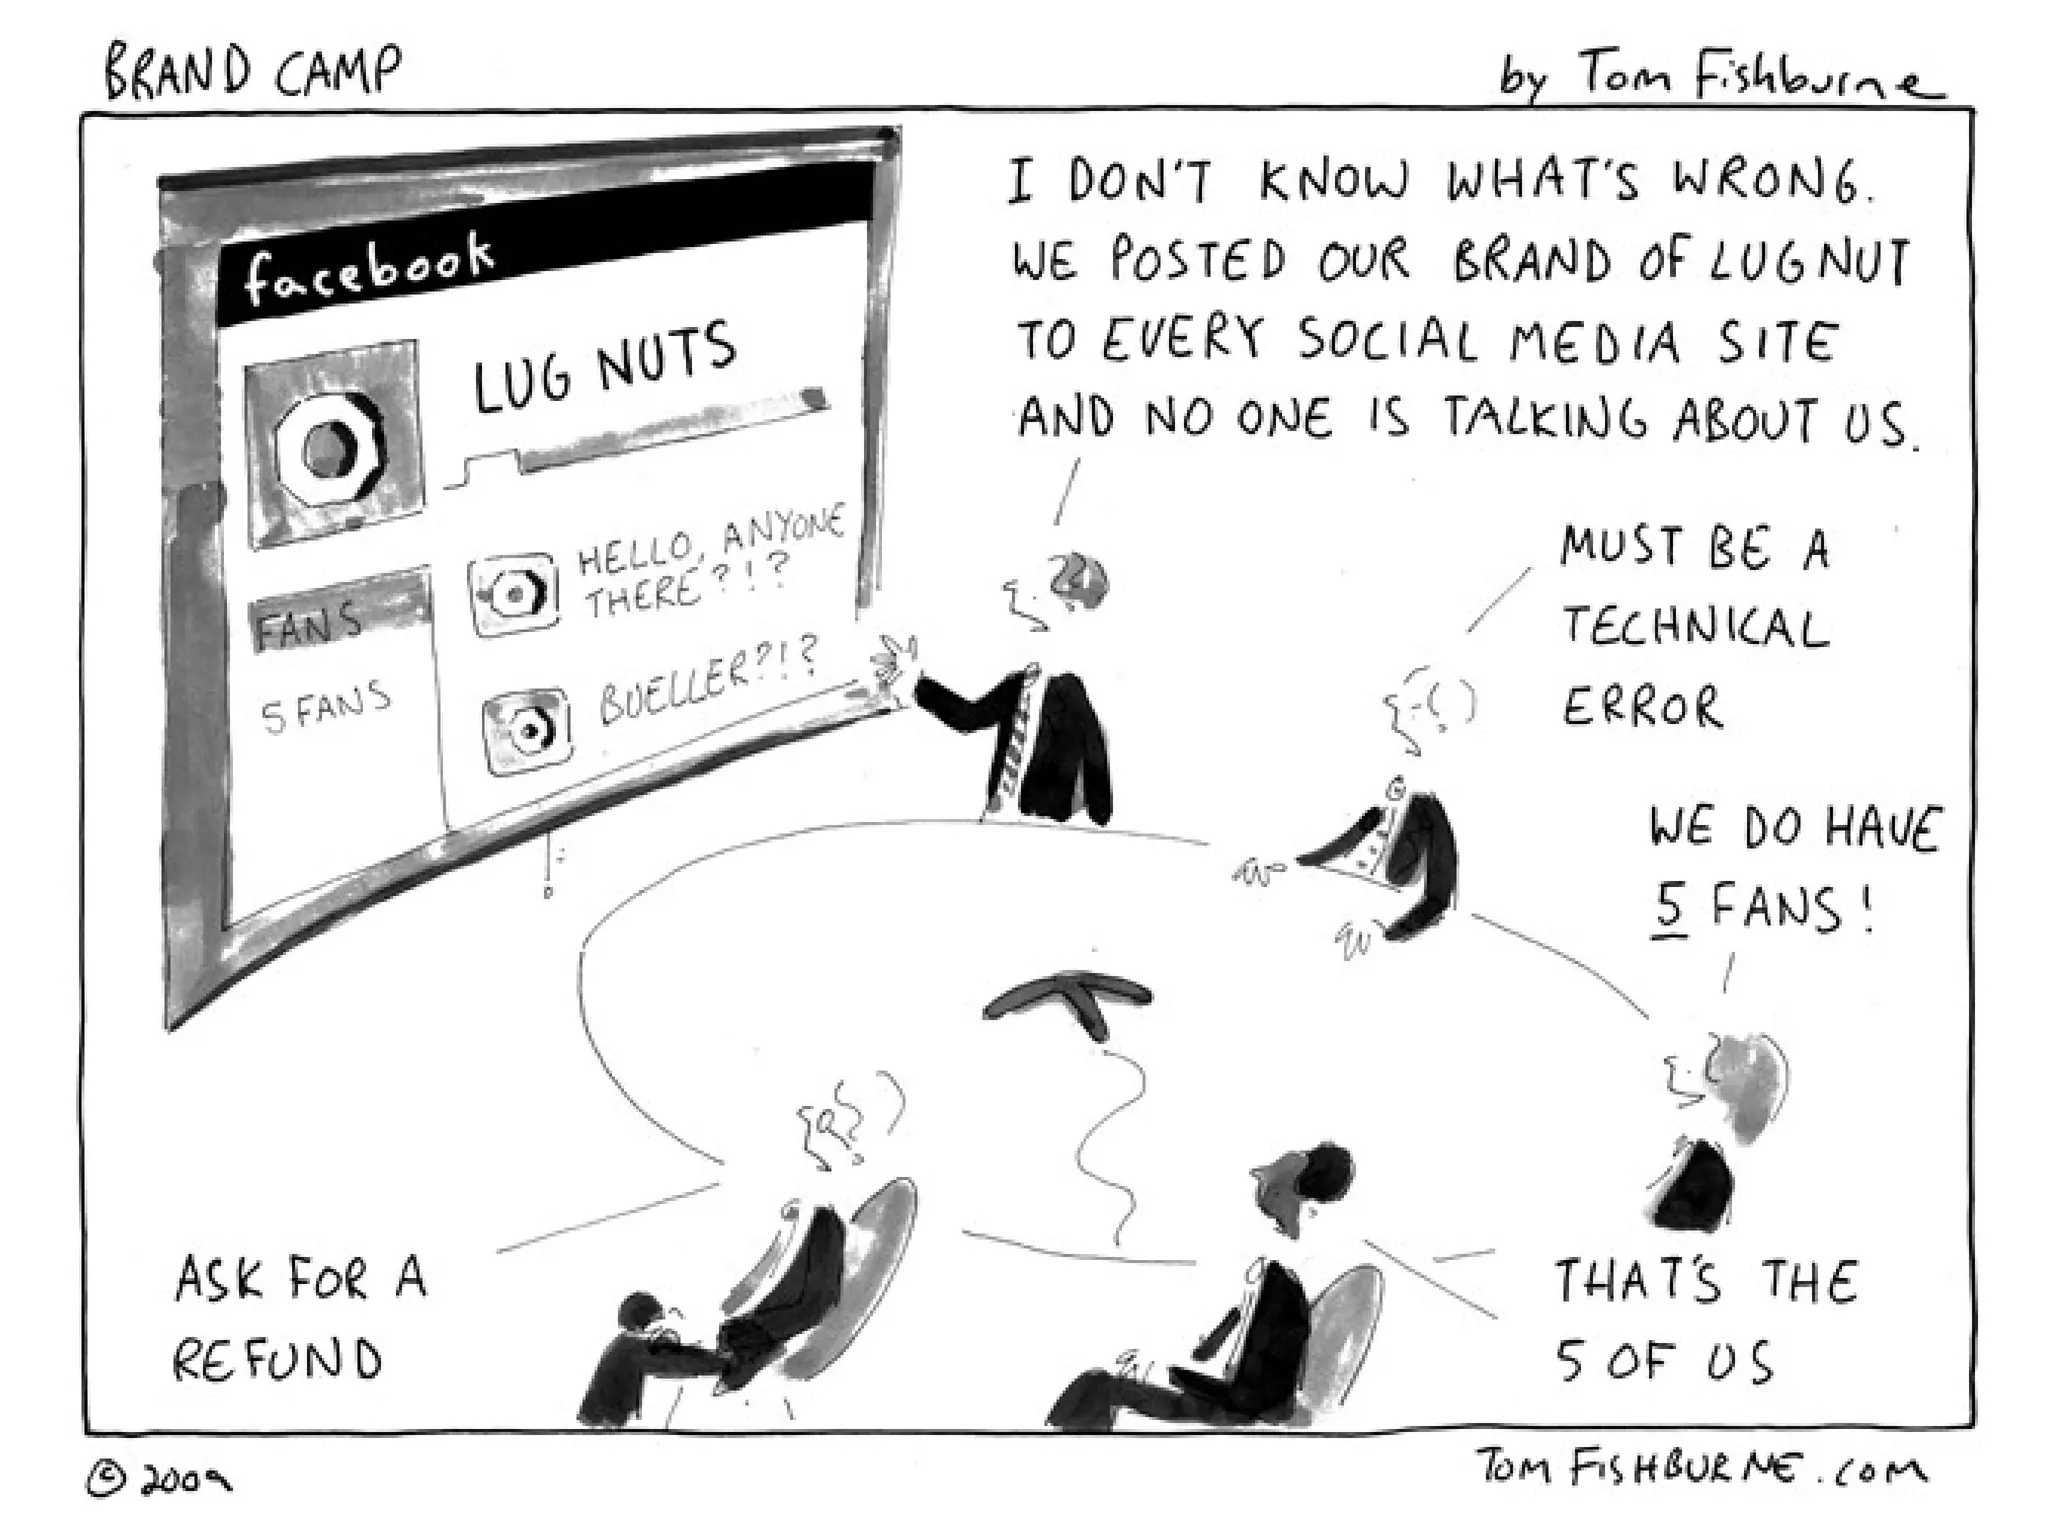 BRAND CAMP
by Tom Fishburne
I DON'T KNOW WHAT'S WRONG.
WE POSTED OUR BRAND OF LUG NUT
TO EVERY SOCIAL MEDIA SITE
AND NO ONE IS TALKING ABOUT US.
facebook
LUG NUTS
HELLO, ANYONE
THERE?!?
FANS
5 FANS
BUELLER?!?
MUST BE A
TECHNICAL
ERROR
WE DO HAVE
5 FANS!
ASK FOR A
REFUND
THAT'S THE
5 OF US
© 2009
TOM FISHBURNE.COM